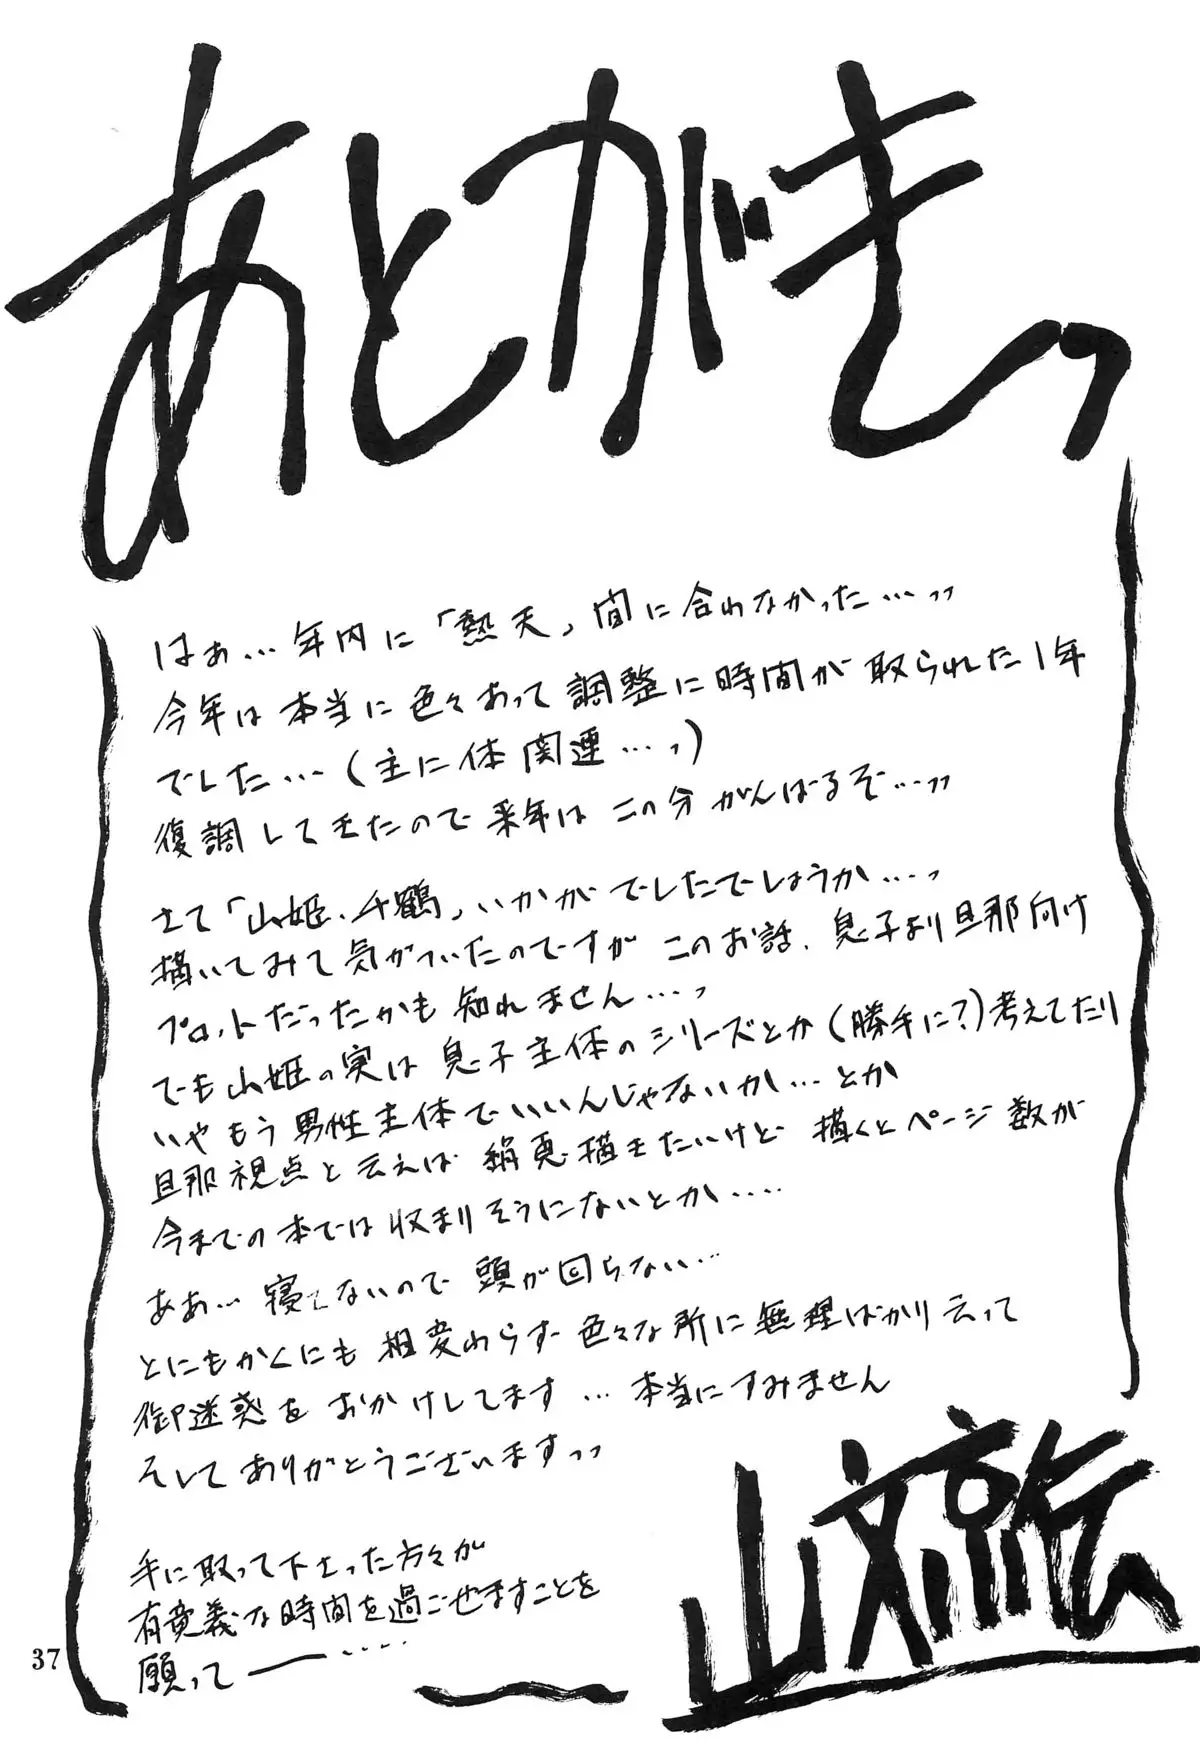 あとがきっ
はぁ…年内に「熱天」間に合わなかった…っっ
今年は本当に色々あって調整に時間が取られた1年
でした…(主に体関連…っ)
復調してきたので来年はこの分がんばるぞ…っっ
さて「山姫、千鶴」いかがでしたでしょうか…っ
描いてみて気がついたのですがこのお話、息子より旦那向け
プロットだったかも知れません…っ
でも山姫の実は息子主体のシリーズとか(勝手に?)考えてたり
いやもう男性主体でいいんじゃないか…とか
旦那視点と云えば絹恵描きたいけど描くとページ数が
今までの本では収まりそうにないとか‥‥
ああ…寝てないので頭が回らない…
とにもかくにも相変わらず色々な所に無理ばかり云って
御迷惑をおかけしてます…本当にすみません
そしてありがとうございますっっ
手に取って下さった方々が
有意義な時間を過ごせますことを
願ってー‥‥
山文京伝
37